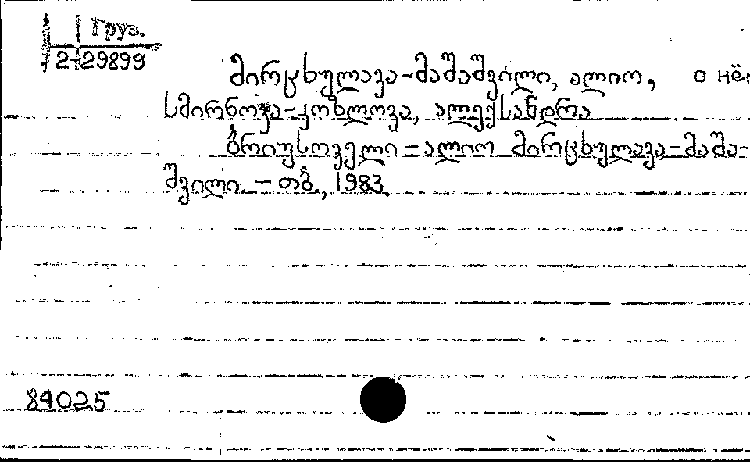 Груз.
2-29899
მირცხულავა-მაშაშვილი, ალიო, о нём
სმირნოვა-კოზლოვა, ალექსანდრა
ბრიუსოველი = ალიო მირცხულავა-მაშა-
შვილი. - თბ., 1983
84025